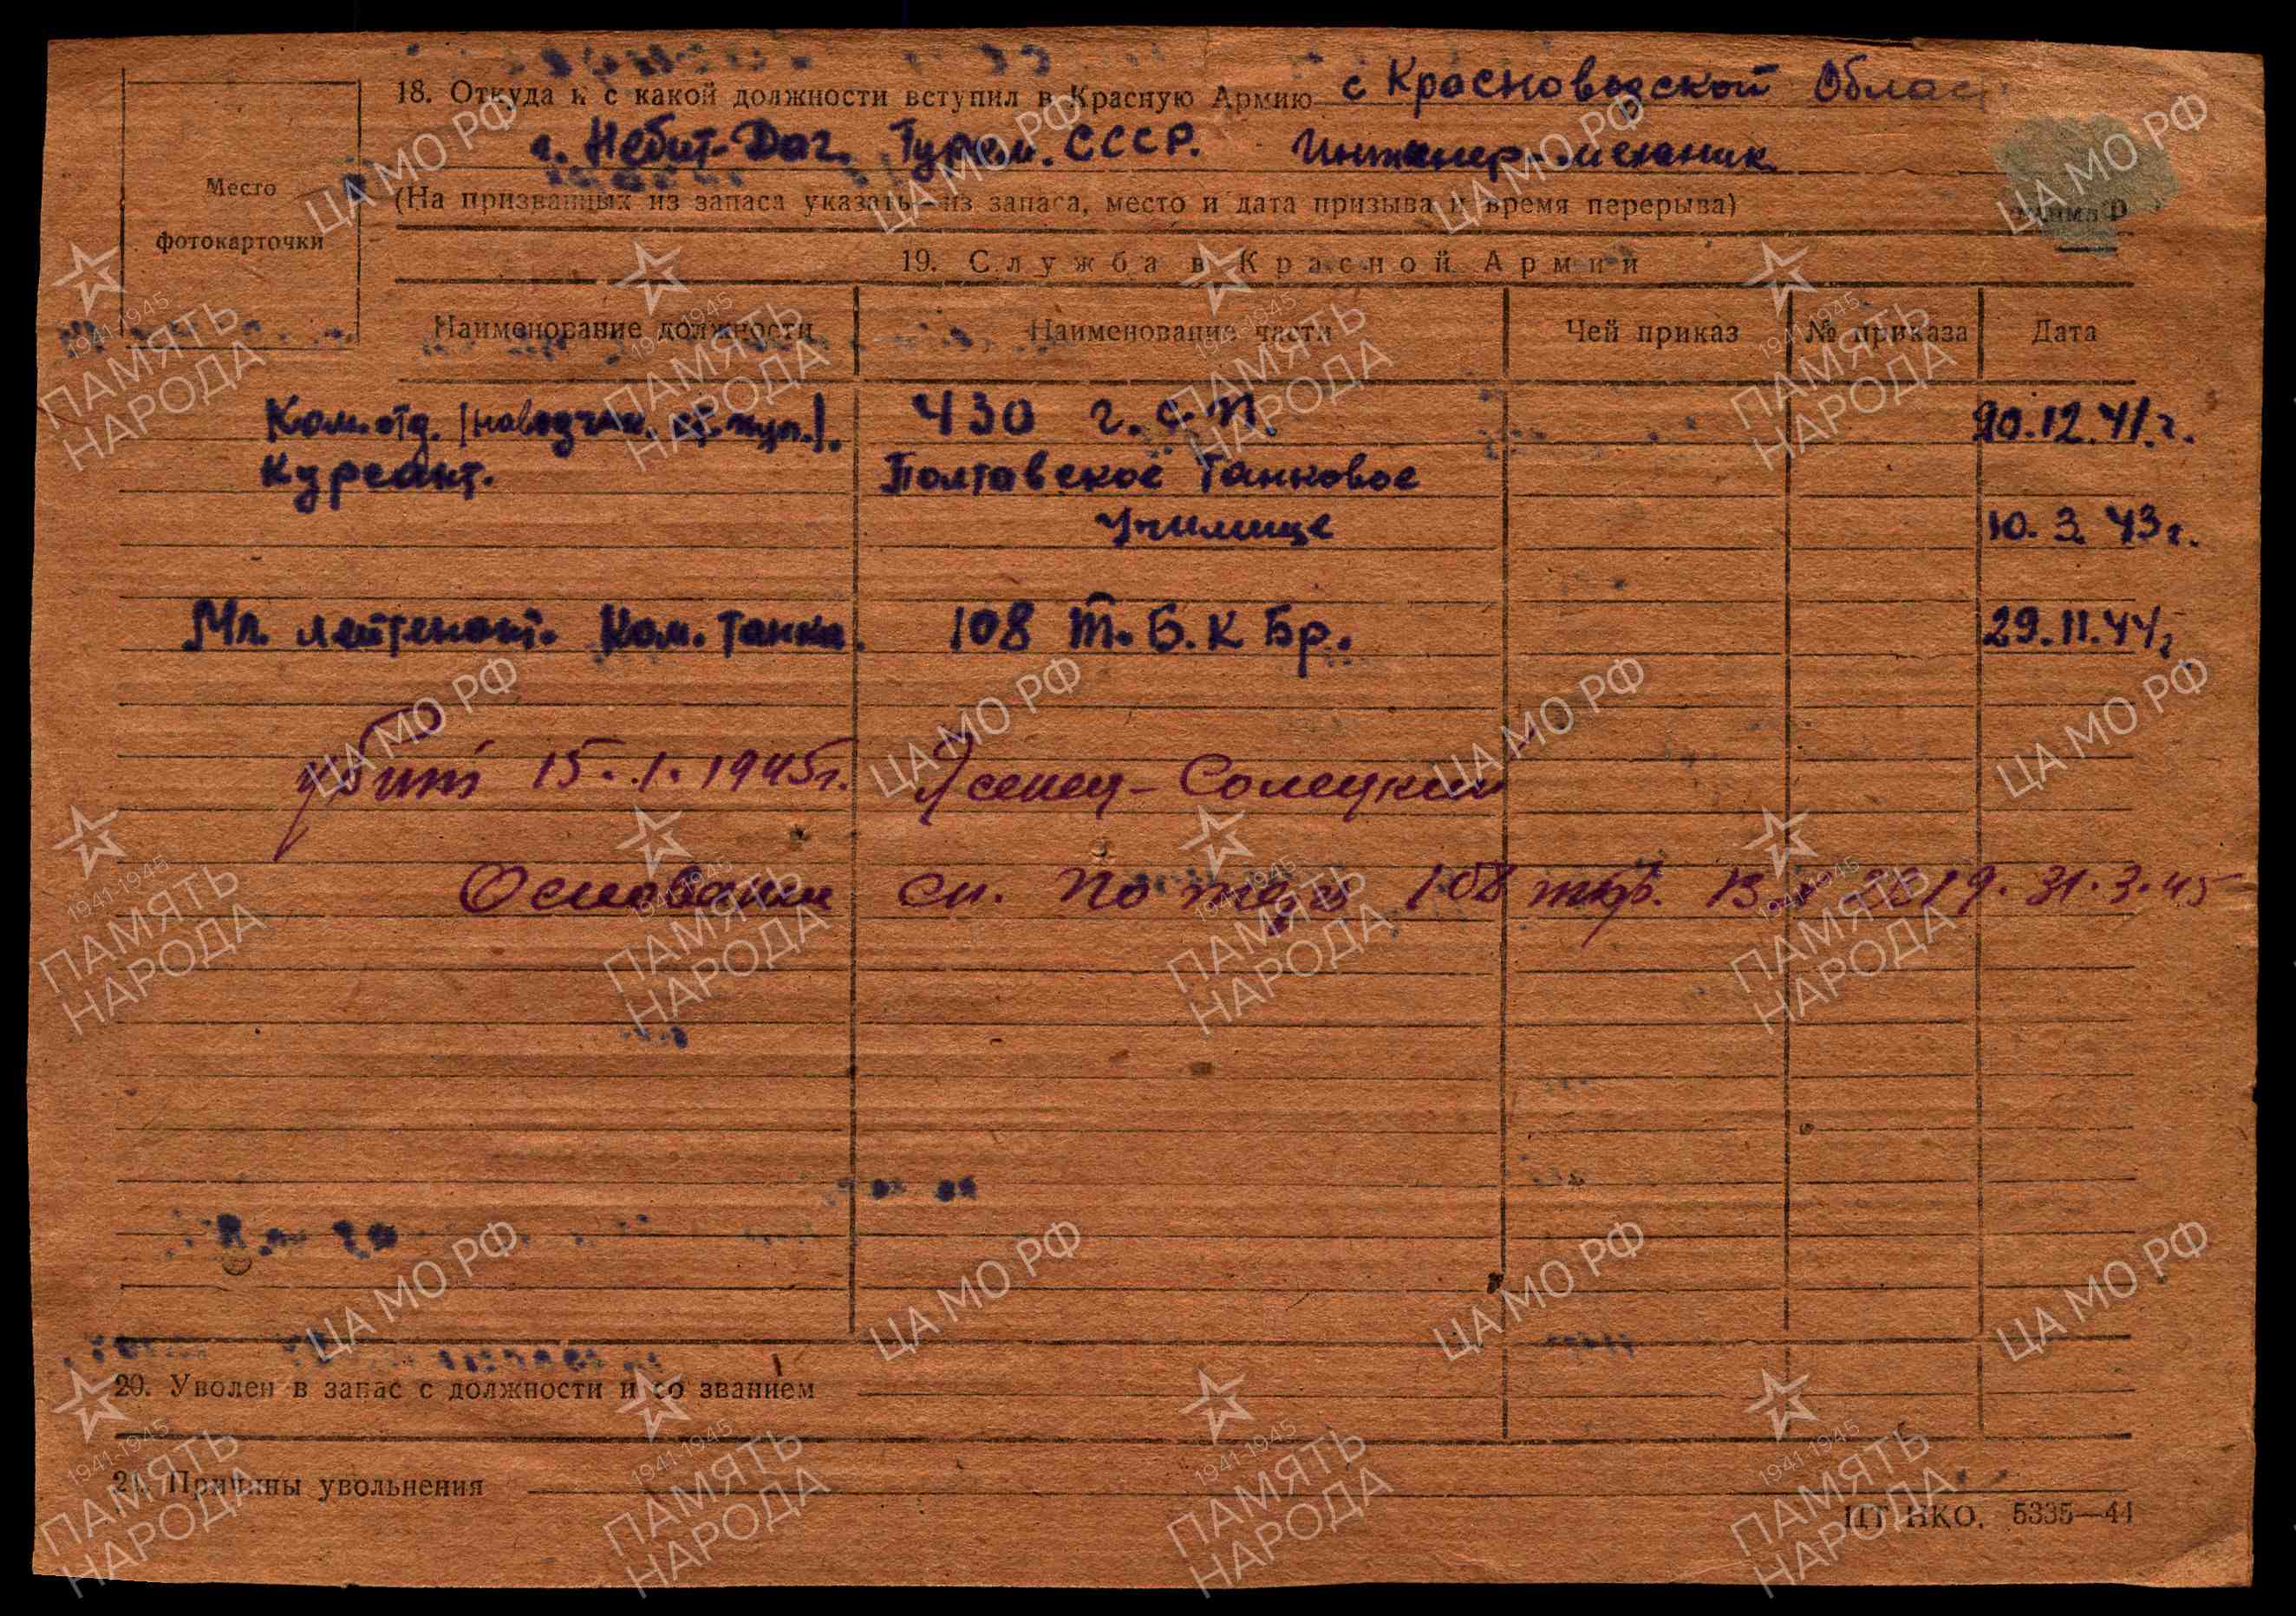 18. Откуда и с какой должности вступил в Красную Армию с Красноводской Облас
г. Небит-Даг. Туркм. СССР. Инженер-механик
(На призванных из запаса указать—из запаса, место и дата призыва и время перерыва)
Место
фотокарточки
19. Служба в Красной Армии
Наименование должности Наименование части Чей приказ № приказа Дата
Ком. отд. (наводчик ст. пул.). 430 г.с.п. 20.12.41.г.
Курсант. Полтавское Танковое
Училище 10.3.43г.
Мл. лейтенант. Ком. танка. 108 Т.Б.К Бр. 29.11.44г
убит 15.1.1945г. Ясенец-Солецкий
Основании сп. потерь 108 тбр. В.
31.3.45
20. Уволен в запас с должности и со званием
21. Причины увольнения
ЦТ НКО. 5335—44
ЦА МО РФ
1941-1945
ПАМЯТЬ
НАРОДА